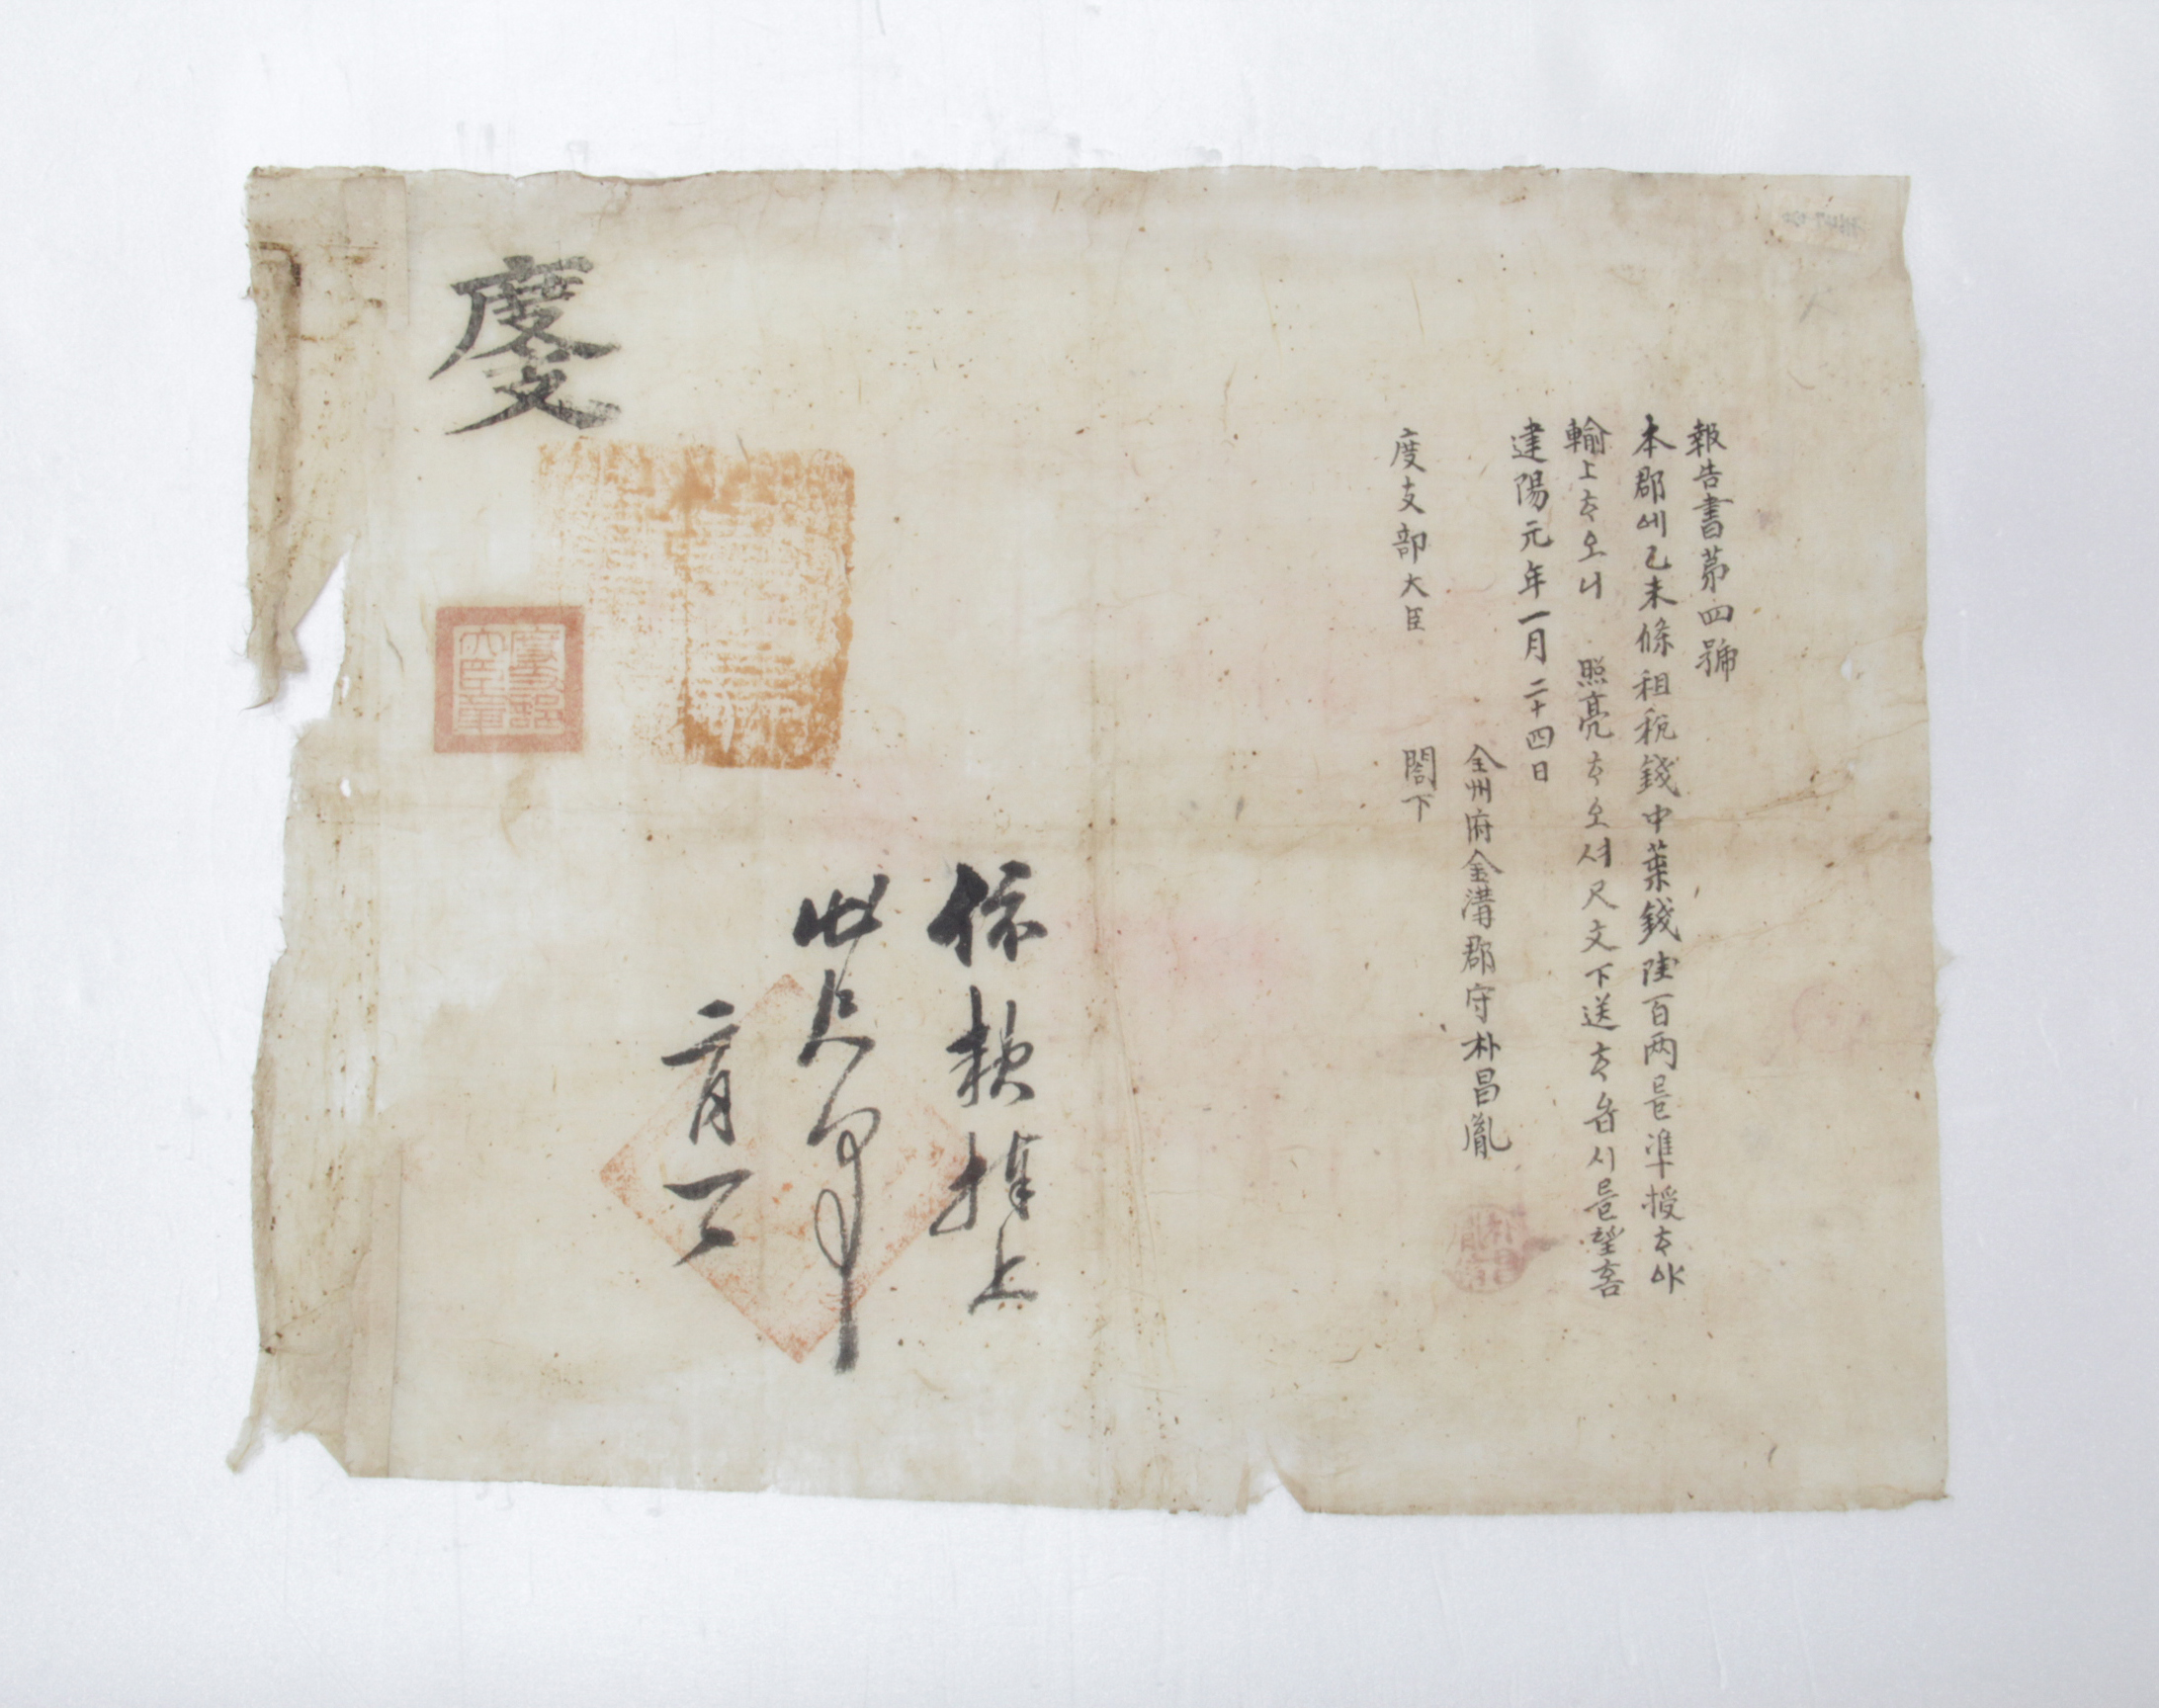 報告書第四號
本郡에乙未條租稅錢中葉錢陸百兩을準授ᄒᆞ야
輸上ᄒᆞ오니 照亮ᄒᆞ오셔尺文下送ᄒᆞ심시을望홈
建陽元年一月二十四日
全州府金溝郡守朴昌胤
度支部大臣 閤下
依數捧上
此尺
二月
度支部大臣章